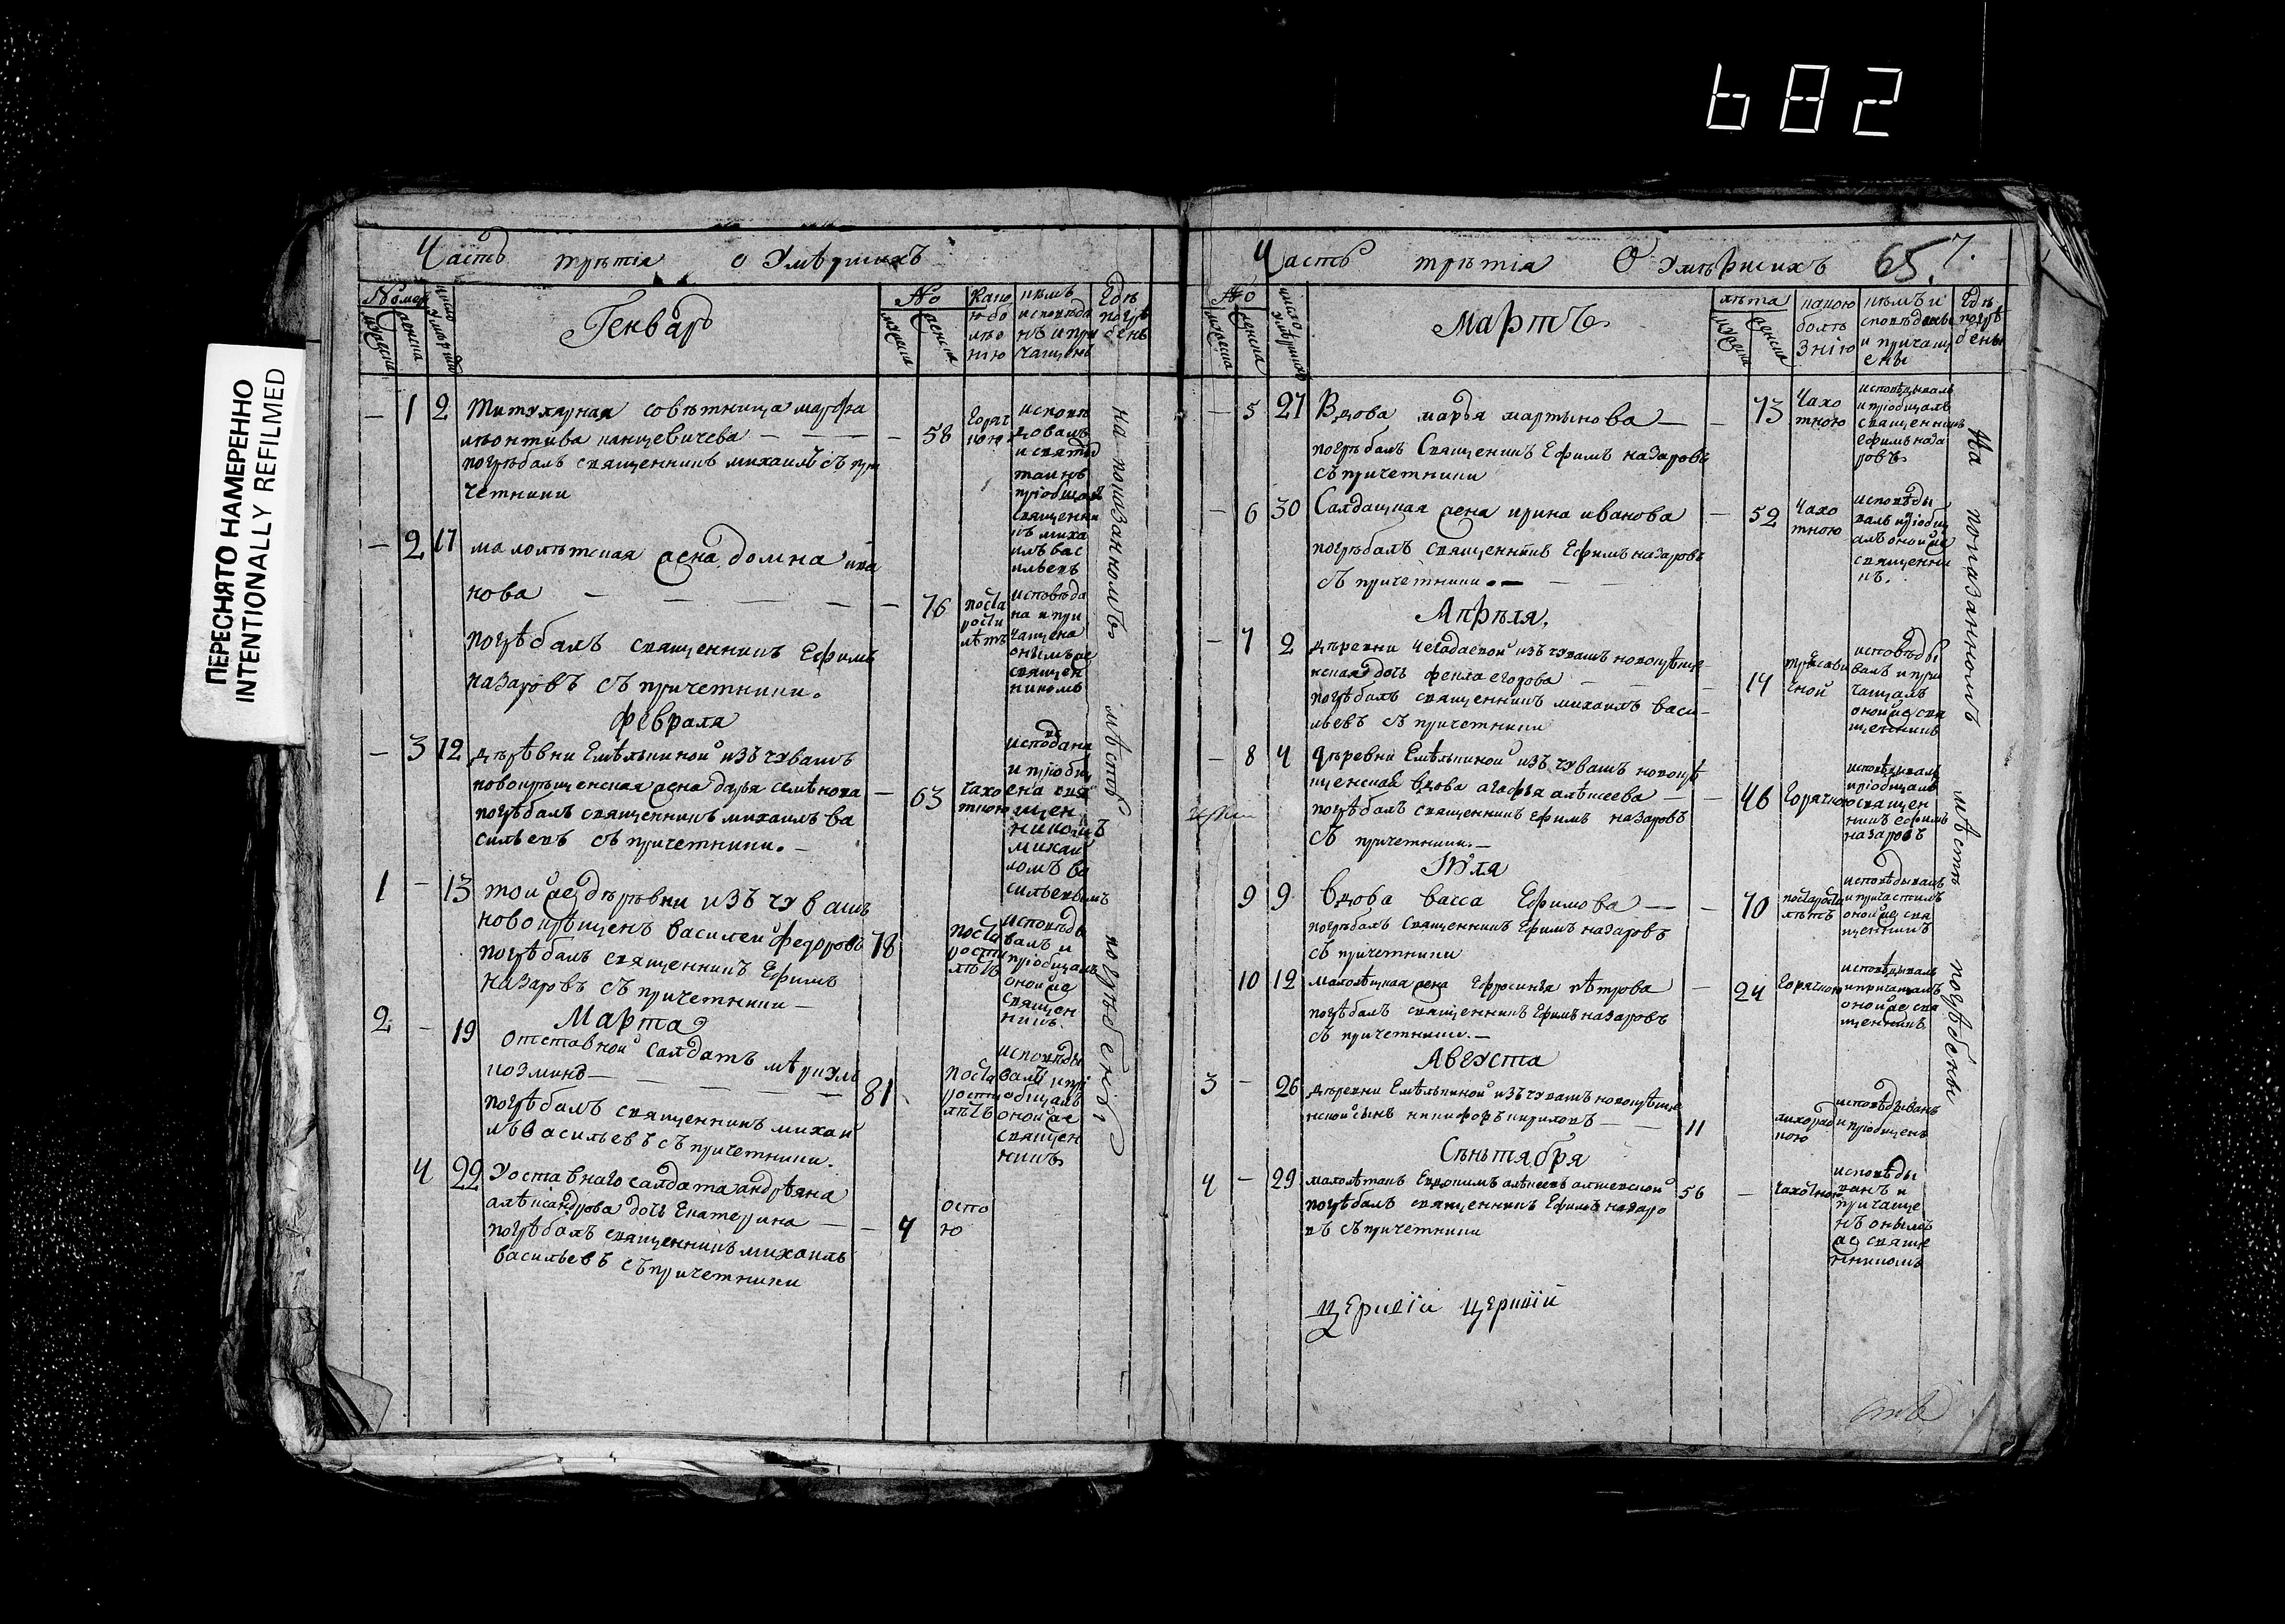 682
ПЕРЕСНЯТО НАМЕРЕННО
INTENTIONALLY REFILMED
Часть третіа о Умершихъ
Номер
мужеска
женска
число умерших
Генварь
No
мужска
женска
Како
ю бо
лѣз
нію
кѣмъ
исповѣда
нъ и при
чащенъ
Гдѣ
погрѣ
бенъ
1 2 Титулярная совѣтница марфа
леонтива панцевичева 58
погрѣбалъ священникъ михаилъ съ при
четники
горяч
кою
исповѣ
довалъ
и святы
таинъ
пріобщалъ
священни
къ миха
илъ вас
ильевъ
2 17 малолѣтская жена домна ива
нова 76
погрѣбалъ священникъ Ефимъ
назаровъ съ причетники.
поста
рости
лѣтъ
исповѣда
на и при
чащена
онымъ же
священ
никомъ
февраля
3 12 дѣрѣвни Емѣлькиной изъ чувашъ
новокрѣщенская жена дарья семѣнова 63
погрѣбалъ священникъ михаилъ ва
сильевъ съ причетники.
чахо
тною
исподана
и пріобщ
ена свя
щен
никомъ
михаи
ломъ ва
сильевымъ
1 13 тои же дѣрѣвни изъ чувашъ
новокрѣщенъ василеи федоровъ 78
погрѣбалъ священникъ Ефимъ
назаровъ съ причетники
поста
рости
лѣтъ
исповѣдо
валъ и
пріобщалъ
оной же
священ
никъ.
Марта
2 19 отставной салдатъ мѣркулъ
козминъ 81
погрѣбалъ священникъ михаи
лъ васильевъ съ причетники.
поста
рости
лѣтъ
исповѣды
валъ и прі
общалъ
оной же
священ
никъ
4 22 Уоставнаго салдата андрѣяна
алѣксандрова дочь Екатерина 4
погрѣбалъ священникъ михаилъ
васильевъ съ причетники
оспо
ю
на показанномъ мѣстѣ погрѣбены
Часть третіа О умерших 65. 7.
No
мужеска
женска
число умерших
Мартъ
лѣта
мужска
женска
какою
болѣ
знію
кѣмъ и
споведаны
и причащ
ены
Гдѣ
погрѣ
бены
5 27 Вдова марья мартынова 73
погрѣбалъ Священикъ Ефимъ назаровъ
съ причетники
Чахо
тною
исповѣдывалъ
и пріобщалъ
священникъ
ефимъ наза
ровъ
6 30 Салдацкая жена ирина иванова 52
погрѣбалъ священникъ Ефимъ назаровъ
съ причетники.
Чахо
тною
исповѣды
валъ и пріобщ
алъ оной же
священни
къ.
Апрѣля.
7 2 дѣревни чегодаевой изъ чувашъ новокрѣще
нская дочь фекла егорова 14
погрѣбалъ священникъ михаилъ васи-
льевъ съ причетники
исповѣды
валъ и при
чащалъ
оной же свя
щенникъ
8 4 дѣревни Емѣлькиной изъ чувашъ новокрѣ
щенская вдова агафья алѣксеева 46
погрѣбалъ священникъ Ефимъ назаровъ
съ причетники.
Горячкою
исповѣдывалъ
и пріобщалъ
священ
никъ ефимъ
назаровъ
Іюля
9 9 Вдова васса Ефимова 70
погрѣбалъ священникъ Ефимъ назаровъ
съ причетники
постарости
лѣтъ
исповѣдывалъ
и причастилъ
оной же свя
щенникъ
10 12 малолѣцкая жена Ефросинья пѣтрова 24
погрѣбалъ священникъ Ефимъ назаровъ
съ причетники.
Горячкою
исповѣдывалъ
и причащалъ
оной же свя
щенникъ
Августа
3 26 дѣревни Емѣлькиной изъ чувашъ новокрѣще
нской сынъ никифоръ кириловъ 11
лихорад
кою
исповѣдыванъ
и пріобщенъ
Сѣнтября
4 29 малолѣтакъ Евдокимъ алѣксеевъ 56
погрѣбалъ священникъ Ефимъ назаро
въ съ причетники
чахотною
исповѣды
ванъ и
причаще
нъ онымъ
же свяще
нникомъ
На показанномъ мѣстѣ погрѣбены